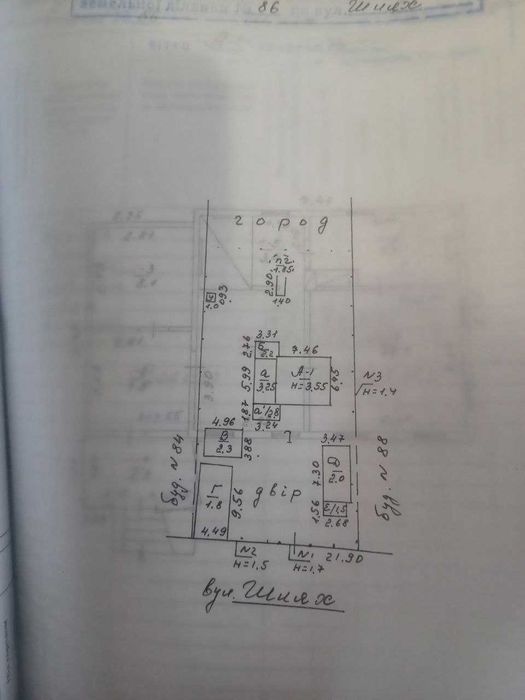 земельної ділянки № 86 по вул. Шлях
город
"пг"
1.85
2.90
1.40
0.93
1.0
3.31
2.76
Б
2.2
7.46
5.99
а
3.25
А-1
Н=3.55
6.45
1.87
а'/2.8
3.24
№3
Н=1.4
4.96
В
2.3
3.88
3.47
7.30
Д
2.0
буд. №84
буд. №88
Г
1.8
9.56
двір
1.56
Е/1.5
2.68
4.49
№2
Н=1.5
№1
Н=1.7
21.90
вул. Шлях